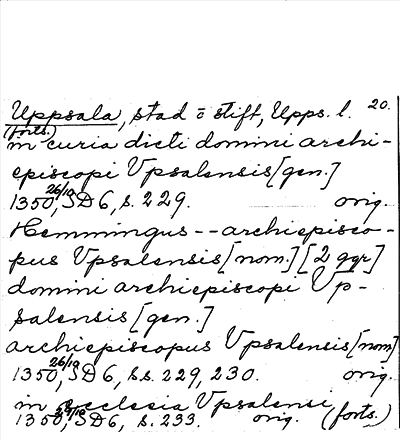 Uppsala, stad o stift, Upps. l. 20.
(forts.)
in curia dicti domini archi-
episcopi Vpsalensis [gen.]
1350 26/10, SD 6, s. 229. orig.
Hemmingus -- archiepisco-
pus Vpsalensis [nom.] [2 ggr]
domini archiepiscopi Vp-
salensis [gen.]
archiepiscopus Vpsalensis [nom]
1350 26/10, SD 6, s.s. 229, 230. orig.
in ecclesia Vpsalensi
1350, SD 6, s. 233. orig. (forts.)